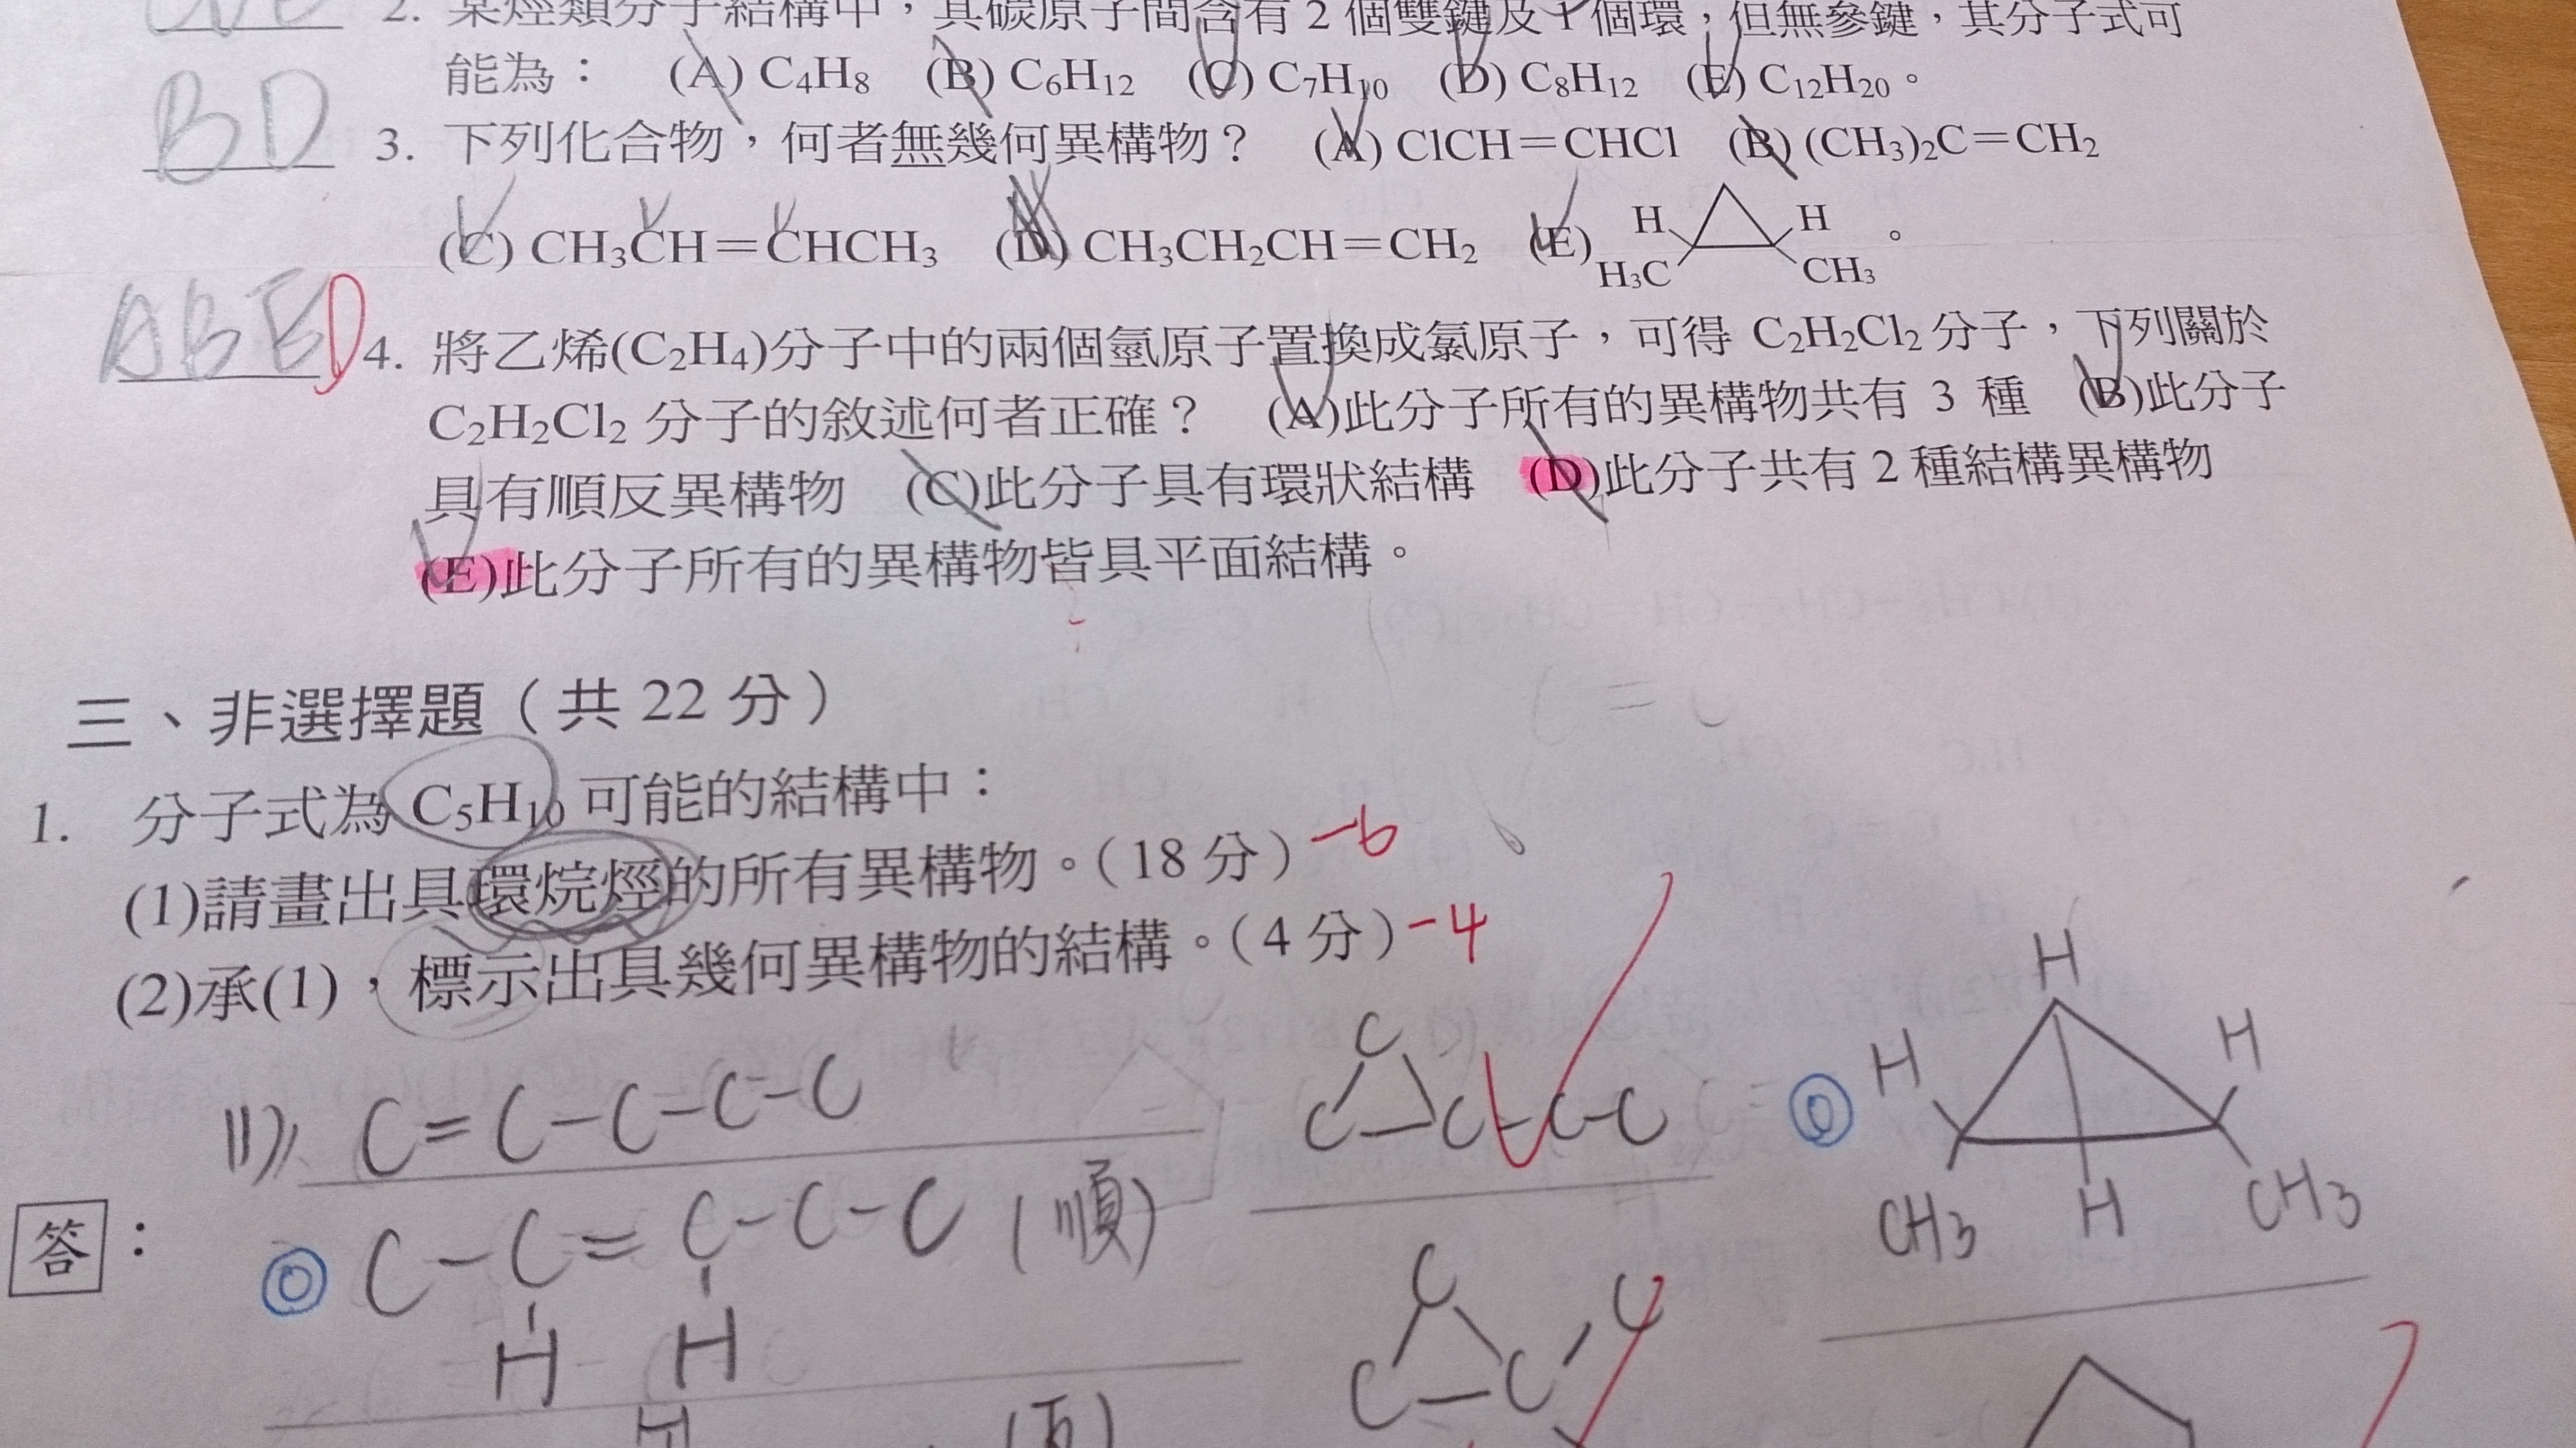 2. 某烴類分子結構中，其碳原子間含有 2 個雙鍵及 1 個環，但無參鍵，其分子式可
能為： (A) C₄H₈ (B) C₆H₁₂ (C) C₇H₁₀ (D) C₈H₁₂ (E) C₁₂H₂₀。
BD 3. 下列化合物，何者無幾何異構物？ (A) ClCH＝CHCl (B) (CH₃)₂C＝CH₂
(C) CH₃CH＝CHCH₃ (D) CH₃CH₂CH＝CH₂ (E) H H H₃C CH₃ 。
ABED 4. 將乙烯(C₂H₄)分子中的兩個氫原子置換成氯原子，可得 C₂H₂Cl₂ 分子，下列關於
C₂H₂Cl₂ 分子的敘述何者正確？ (A)此分子所有的異構物共有 3 種 (B)此分子
具有順反異構物 (C)此分子具有環狀結構 (D)此分子共有 2 種結構異構物
(E)此分子所有的異構物皆具平面結構。
三、非選擇題（共 22 分）
1. 分子式為 C₅H₁₀ 可能的結構中：
(1)請畫出具環烷烴的所有異構物。（18 分） -6
(2)承(1)，標示出具幾何異構物的結構。（4 分） -4
(1) C=C-C-C-C
答：
C-C=C-C-C (順)
H H
H (反)
C
C-C-C-C
H
H H
CH₃ H CH₃
C C
C-C